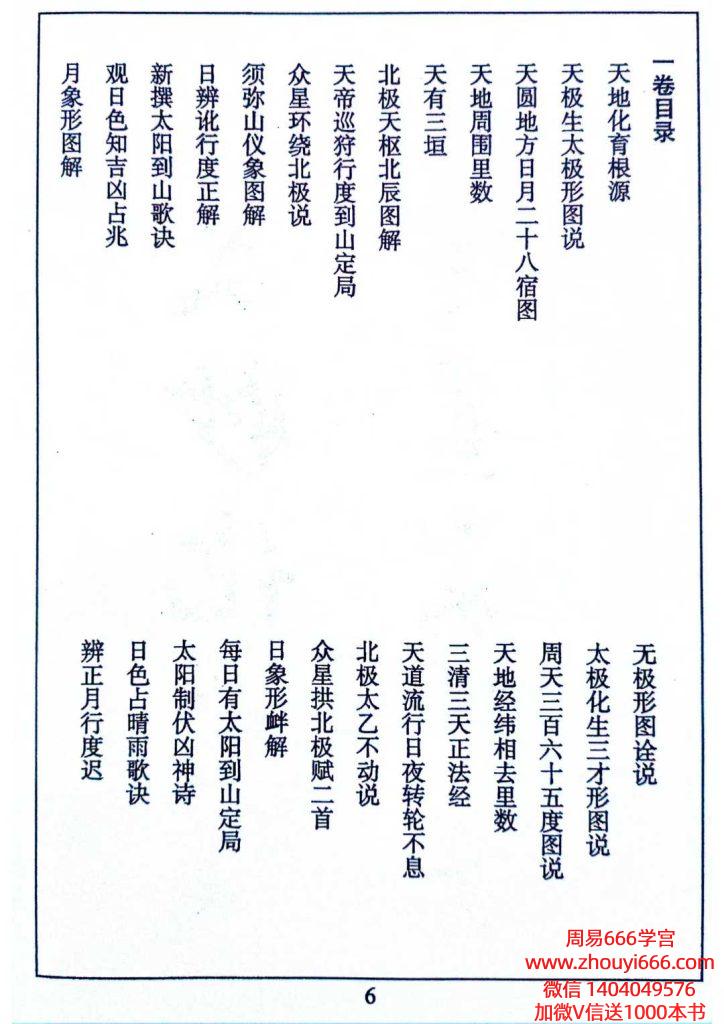 一卷目录
天地化育根源
无极形图诠说
天极生太极形图说
太极化生三才形图说
天圆地方日月二十八宿图
周天三百六十五度图说
天地周围里数
天地经纬相去里数
天有三垣
三清三天正法经
北极天枢北辰图解
天道流行日夜转轮不息
天帝巡狩行度到山定局
北极太乙不动说
众星环绕北极说
众星拱北极赋二首
须弥山仪象图解
日象形衅解
日辨讹行度正解
每日有太阳到山定局
新撰太阳到山歌诀
太阳制伏凶神诗
观日色知吉凶占兆
日色占晴雨歌诀
月象形图解
辨正月行度迟
6
周易666学宫
www.zhouyi666.com
微信 1404049576
加微V信送1000本书